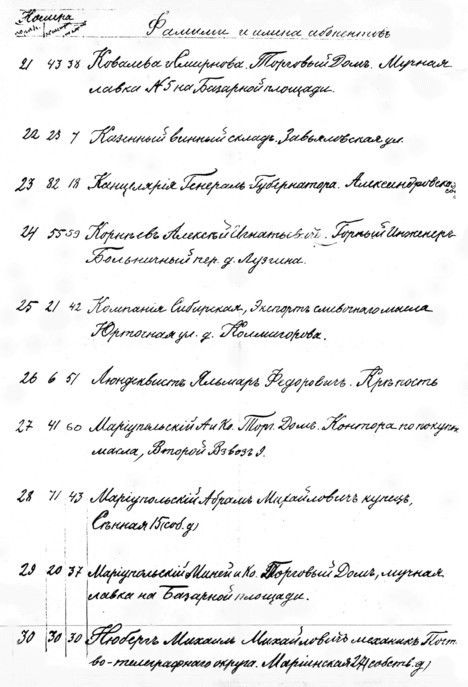 Номера
Фамилии и имена абонентовъ
21 43 38 Ковалева и Смирнова. Торговый Домъ. Мучная
лавка №5 на Базарной площади.
22 23 7 Казенный винный складъ. Завьяловская ул.
23 82 18 Канцелярія Генералъ Губернатора. Александровская
24 55 59 Корнѣевъ Алексѣй Игнатьевой. Горный Инженеръ
Больничный пер. д. Лузгина.
25 21 42 Компанія Сибирская, Экспортъ сливочнаго масла
Юрточная ул. д. Колмигорова.
26 6 51 Люндквистъ Яльмаръ Федоровичъ. Крѣпость
27 41 60 Маріупольскій А и Ко. Торг. Домъ. Контора по покупк
масла, Второй Взвозъ 9.
28 71 43 Маріупольскій Абрамъ Михайловичъ купецъ,
Сѣнная 15 (соб. д)
29 20 37 Маріупольскій Миней и Ко. Торговый Домъ, мучная
лавка на Базарной площади.
30 30 30 Нюбергъ Михаилъ Михайловичъ механикъ Почт
во-телеграфнаго округа. Маріинская 24 (собств. д)